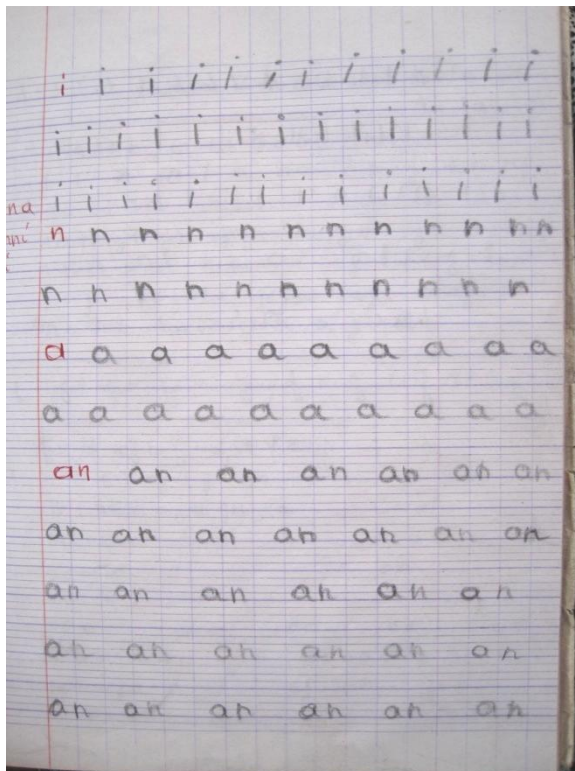 i i i i i i i i i i i i
i i i i i i i i i i i i i i
i i i i i i i i i i i i i i
na
n n n n n n n n n n n n
n n n n n n n n n n n
a a a a a a a a a a
a a a a a a a a a a
an an an an an an an
an an an an an an an
an an an an an an
an an an an an an
an an an an an an